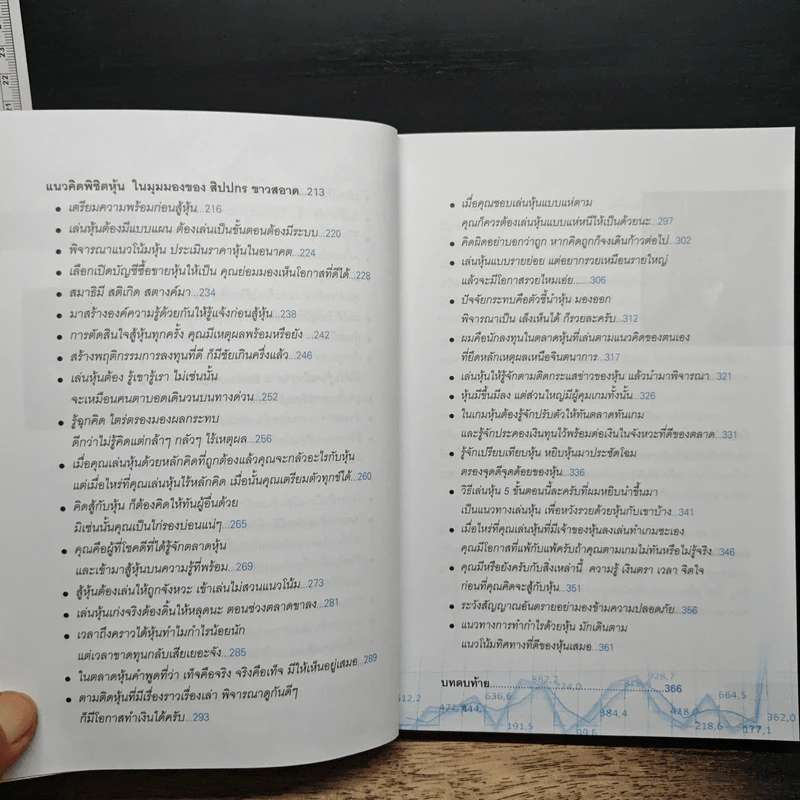 แนวคิดพิชิตหุ้น ในมุมมองของ สิปปกร ขาวสอาด...213
• เตรียมความพร้อมก่อนสู้หุ้น...216
• เล่นหุ้นต้องมีแบบแผน ต้องเล่นเป็นขั้นตอนต้องมีระบบ...220
• พิจารณาแนวโน้มหุ้น ประเมินราคาหุ้นในอนาคต...224
• เลือกเปิดบัญชีซื้อขายหุ้นให้เป็น คุณย่อมมองเห็นโอกาสที่ดีได้...228
• สมาธิมี สติเกิด สตางค์มา...234
• มาสร้างองค์ความรู้ด้วยกันให้รู้แจ้งก่อนสู้หุ้น...238
• การตัดสินใจสู้หุ้นทุกครั้ง คุณมีเหตุผลพร้อมหรือยัง ...242
• สร้างพฤติกรรมการลงทุนที่ดี ก็มีชัยเกินครึ่งแล้ว...246
• เล่นหุ้นต้อง รู้เขารู้เรา ไม่เช่นนั้น
จะเหมือนคนตาบอดเดินวนบนทางด่วน...252
• รู้ฉุกคิด ไตร่ตรองมองผลกระทบ
ดีกว่าไม่รู้คิดแต่กล้าๆ กลัวๆ ไร้เหตุผล...256
• เมื่อคุณเล่นหุ้นด้วยหลักคิดที่ถูกต้องแล้วคุณจะกลัวอะไรกับหุ้น
แต่เมื่อไหร่ที่คุณเล่นหุ้นไร้หลักคิด เมื่อนั้นคุณเตรียมตัวทุกข์ได้...260
• คิดสู้กับหุ้น ก็ต้องคิดให้ทันผู้อื่นด้วย
มิเช่นนั้นคุณเป็นไก่รองบ่อนแน่ๆ...265
• คุณคือผู้ที่โชคดีที่ได้รู้จักตลาดหุ้น
และเข้ามาสู้หุ้นบนความรู้ที่พร้อม...269
• สู้หุ้นต้องเล่นให้ถูกจังหวะ เข้าเล่นไม่สวนแนวโน้ม...273
• เล่นหุ้นเก่งจริงต้องดิ้นให้หลุดนะ ตอนช่วงตลาดขาลง...281
• เวลาถึงคราวได้หุ้นทำไมกำไรน้อยนัก
แต่เวลาขาดทุนกลับเสียเยอะจัง...285
• ในตลาดหุ้นคำพูดที่ว่า เท็จคือจริง จริงคือเท็จ มีให้เห็นอยู่เสมอ...289
• ตามติดหุ้นที่มีเรื่องราวเรื่องเล่า พิจารณาดูกันดีๆ
ก็มีโอกาสทำเงินได้ครับ...293
• เมื่อคุณชอบเล่นหุ้นแบบแห่ตาม
คุณก็ควรต้องเล่นหุ้นแบบแห่หนีให้เป็นด้วยนะ...297
• คิดผิดอย่าบอกว่าถูก หากคิดถูกก็จงเดินก้าวต่อไป...302
• เล่นหุ้นแบบรายย่อย แต่อยากรวยเหมือนรายใหญ่
แล้วจะมีโอกาสรวยไหมเอ่ย.......306
• ปัจจัยกระทบคือตัวชี้นำหุ้น มองออก
พิจารณาเป็น เล็งเห็นได้ ก็รวยละครับ...312
• ผมคือนักลงทุนในตลาดหุ้นที่เล่นตามแนวคิดของตนเอง
ที่ยึดหลักเหตุผลเหนือจินตนาการ...317
• เล่นหุ้นให้รู้จักตามติดกระแสข่าวของหุ้น แล้วนำมาพิจารณา...321
• หุ้นมีขึ้นมีลง แต่ส่วนใหญ่มีผู้คุมเกมทั้งนั้น...326
• ในเกมหุ้นต้องรู้จักปรับตัวให้ทันตลาดทันเกม
และรู้จักประคองเงินทุนไว้พร้อมต่อเงินในจังหวะที่ดีของตลาด...331
• รู้จักเปรียบเทียบหุ้น หยิบหุ้นมาประชัดโฉม
ตรองจุดดีจุดด้อยของหุ้น...336
• วิธีเล่นหุ้น 5 ขั้นตอนนี้ละครับที่ผมหยิบนำขึ้นมา
เป็นแนวทางเล่นหุ้น เพื่อหวังรวยด้วยหุ้นกับเขาบ้าง...341
• เมื่อไหร่ที่คุณเล่นหุ้นที่มีเจ้าของหุ้นลงเล่นทำเกมซะเอง
คุณมีโอกาสที่แพ้กับแพ้ครับถ้าคุณตามเกมไม่ทันหรือไม่รู้จริง...346
• คุณมีหรือยังครับกับสิ่งเหล่านี้ ความรู้ เงินตรา เวลา จิตใจ
ก่อนที่คุณคิดจะสู้กับหุ้น...351
• ระวังสัญญาณอันตรายอย่ามองข้ามความปลอดภัย...356
• แนวทางการทำกำไรด้วยหุ้น มักเดินตาม
แนวโน้มทิศทางที่ดีของหุ้นเสมอ...361
บทตบท้าย...................................................366